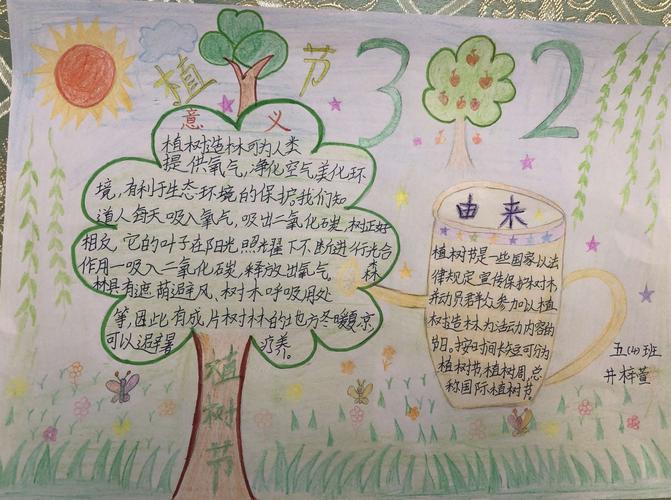 植树节
3 2
意义
植树造林可为人类
提供氧气,净化空气美化环
境,有利于生态环境的保护。我们知
道人每天吸入氧气,吸出二氧化碳,树正好
相反,它的叶子在阳光照耀下不断进行光合
作用一吸入二氧化碳,释放出氧气。森
林具有遮荫避风、树木呼吸用处
等,因此有成片树林的地方冬暖夏凉,
可以避暑 疗养。
植树节
由来
植树节是一些国家以法
律规定宣传保护树木,
并动员群众参加以植
树造林为活动内容的
节日。按时间长短可分为
植树节、植树周,总
称国际植树节
五(4)班
井梓萱